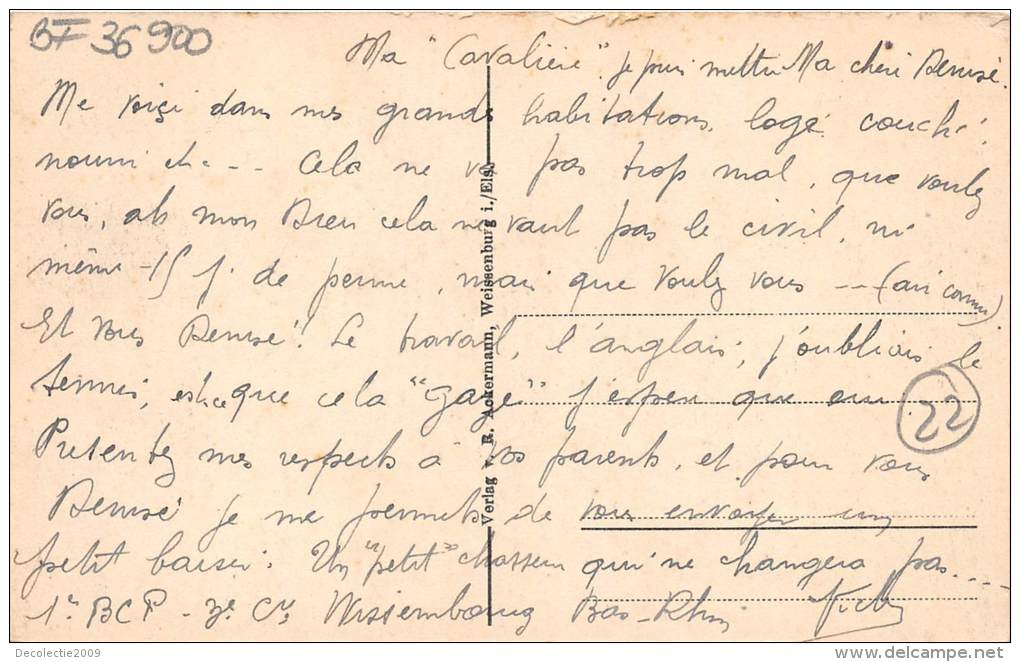 BF 36900
Ma "Cavalière". je puis mettre Ma chérie Denise.
Me voiçi dans mes grandes habitations, logé, couché,
nourri etc... Cela ne va pas trop mal, que voulez
vous, ah mon Dieu cela ne vaut pas le civil, ni
même 15 j. de perme, mais que voulez vous ... (air connu).
Et vous Denise! Le travail, l'anglais, j'oubliais le
tennis, est-ce que cela "gaze" j'espère que oui.
Présentez mes respects à vos parents, et pour vous
Denise je me permets de vous envoyer un
petit baiser. Un "petit" chasseur qui ne changera pas....
1er BCP - 3e Cie Wissembourg Bas-Rhin
22
Verlag v. R. Ackermann, Weissenburg i./Els.
Decolectie2009
delcampe.net